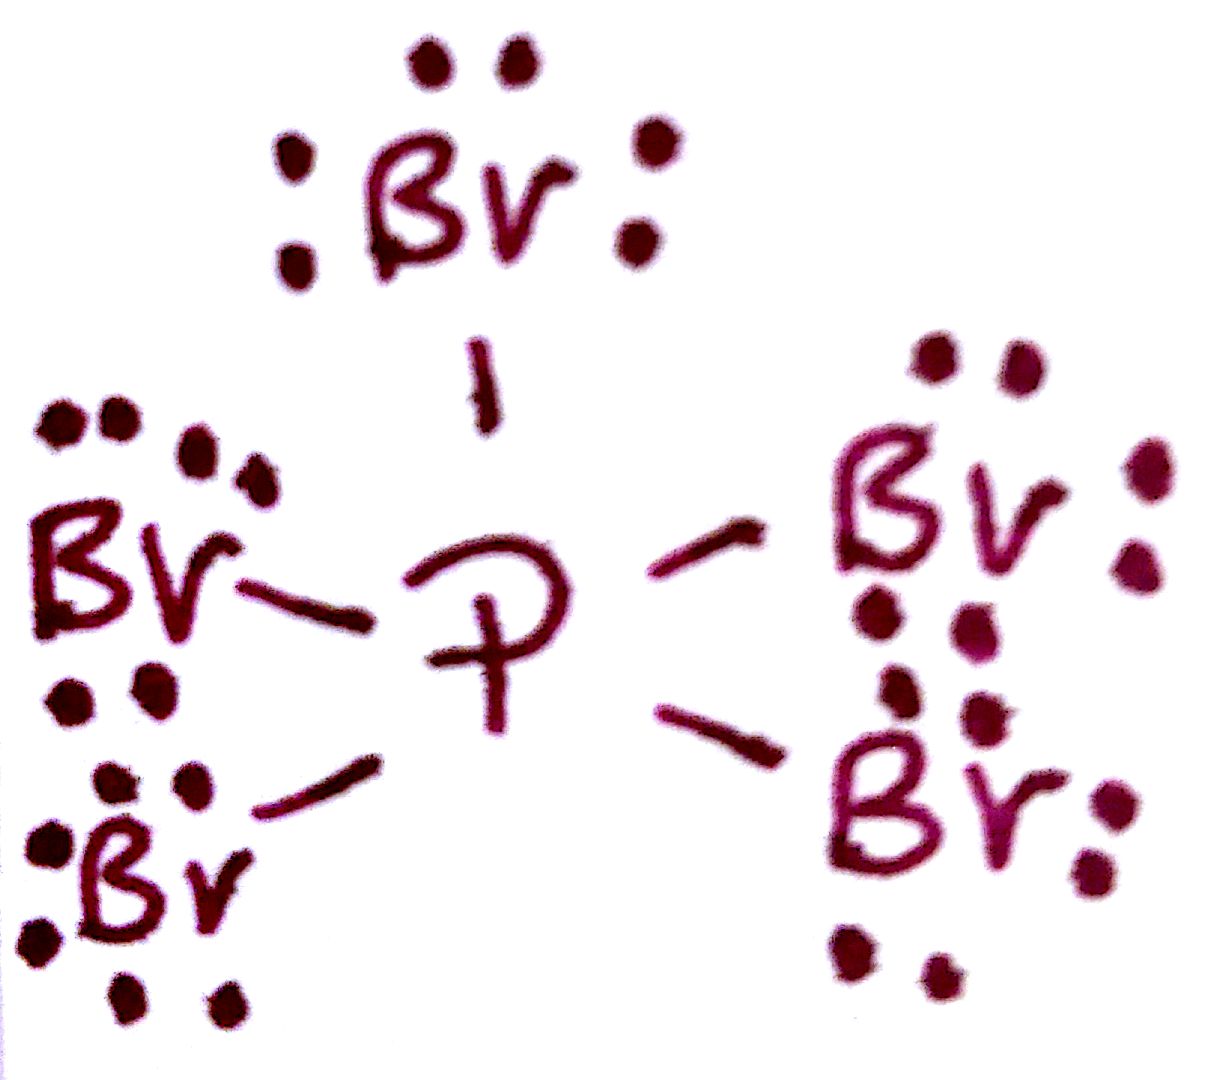 Br
Br
Br
P
Br
Br